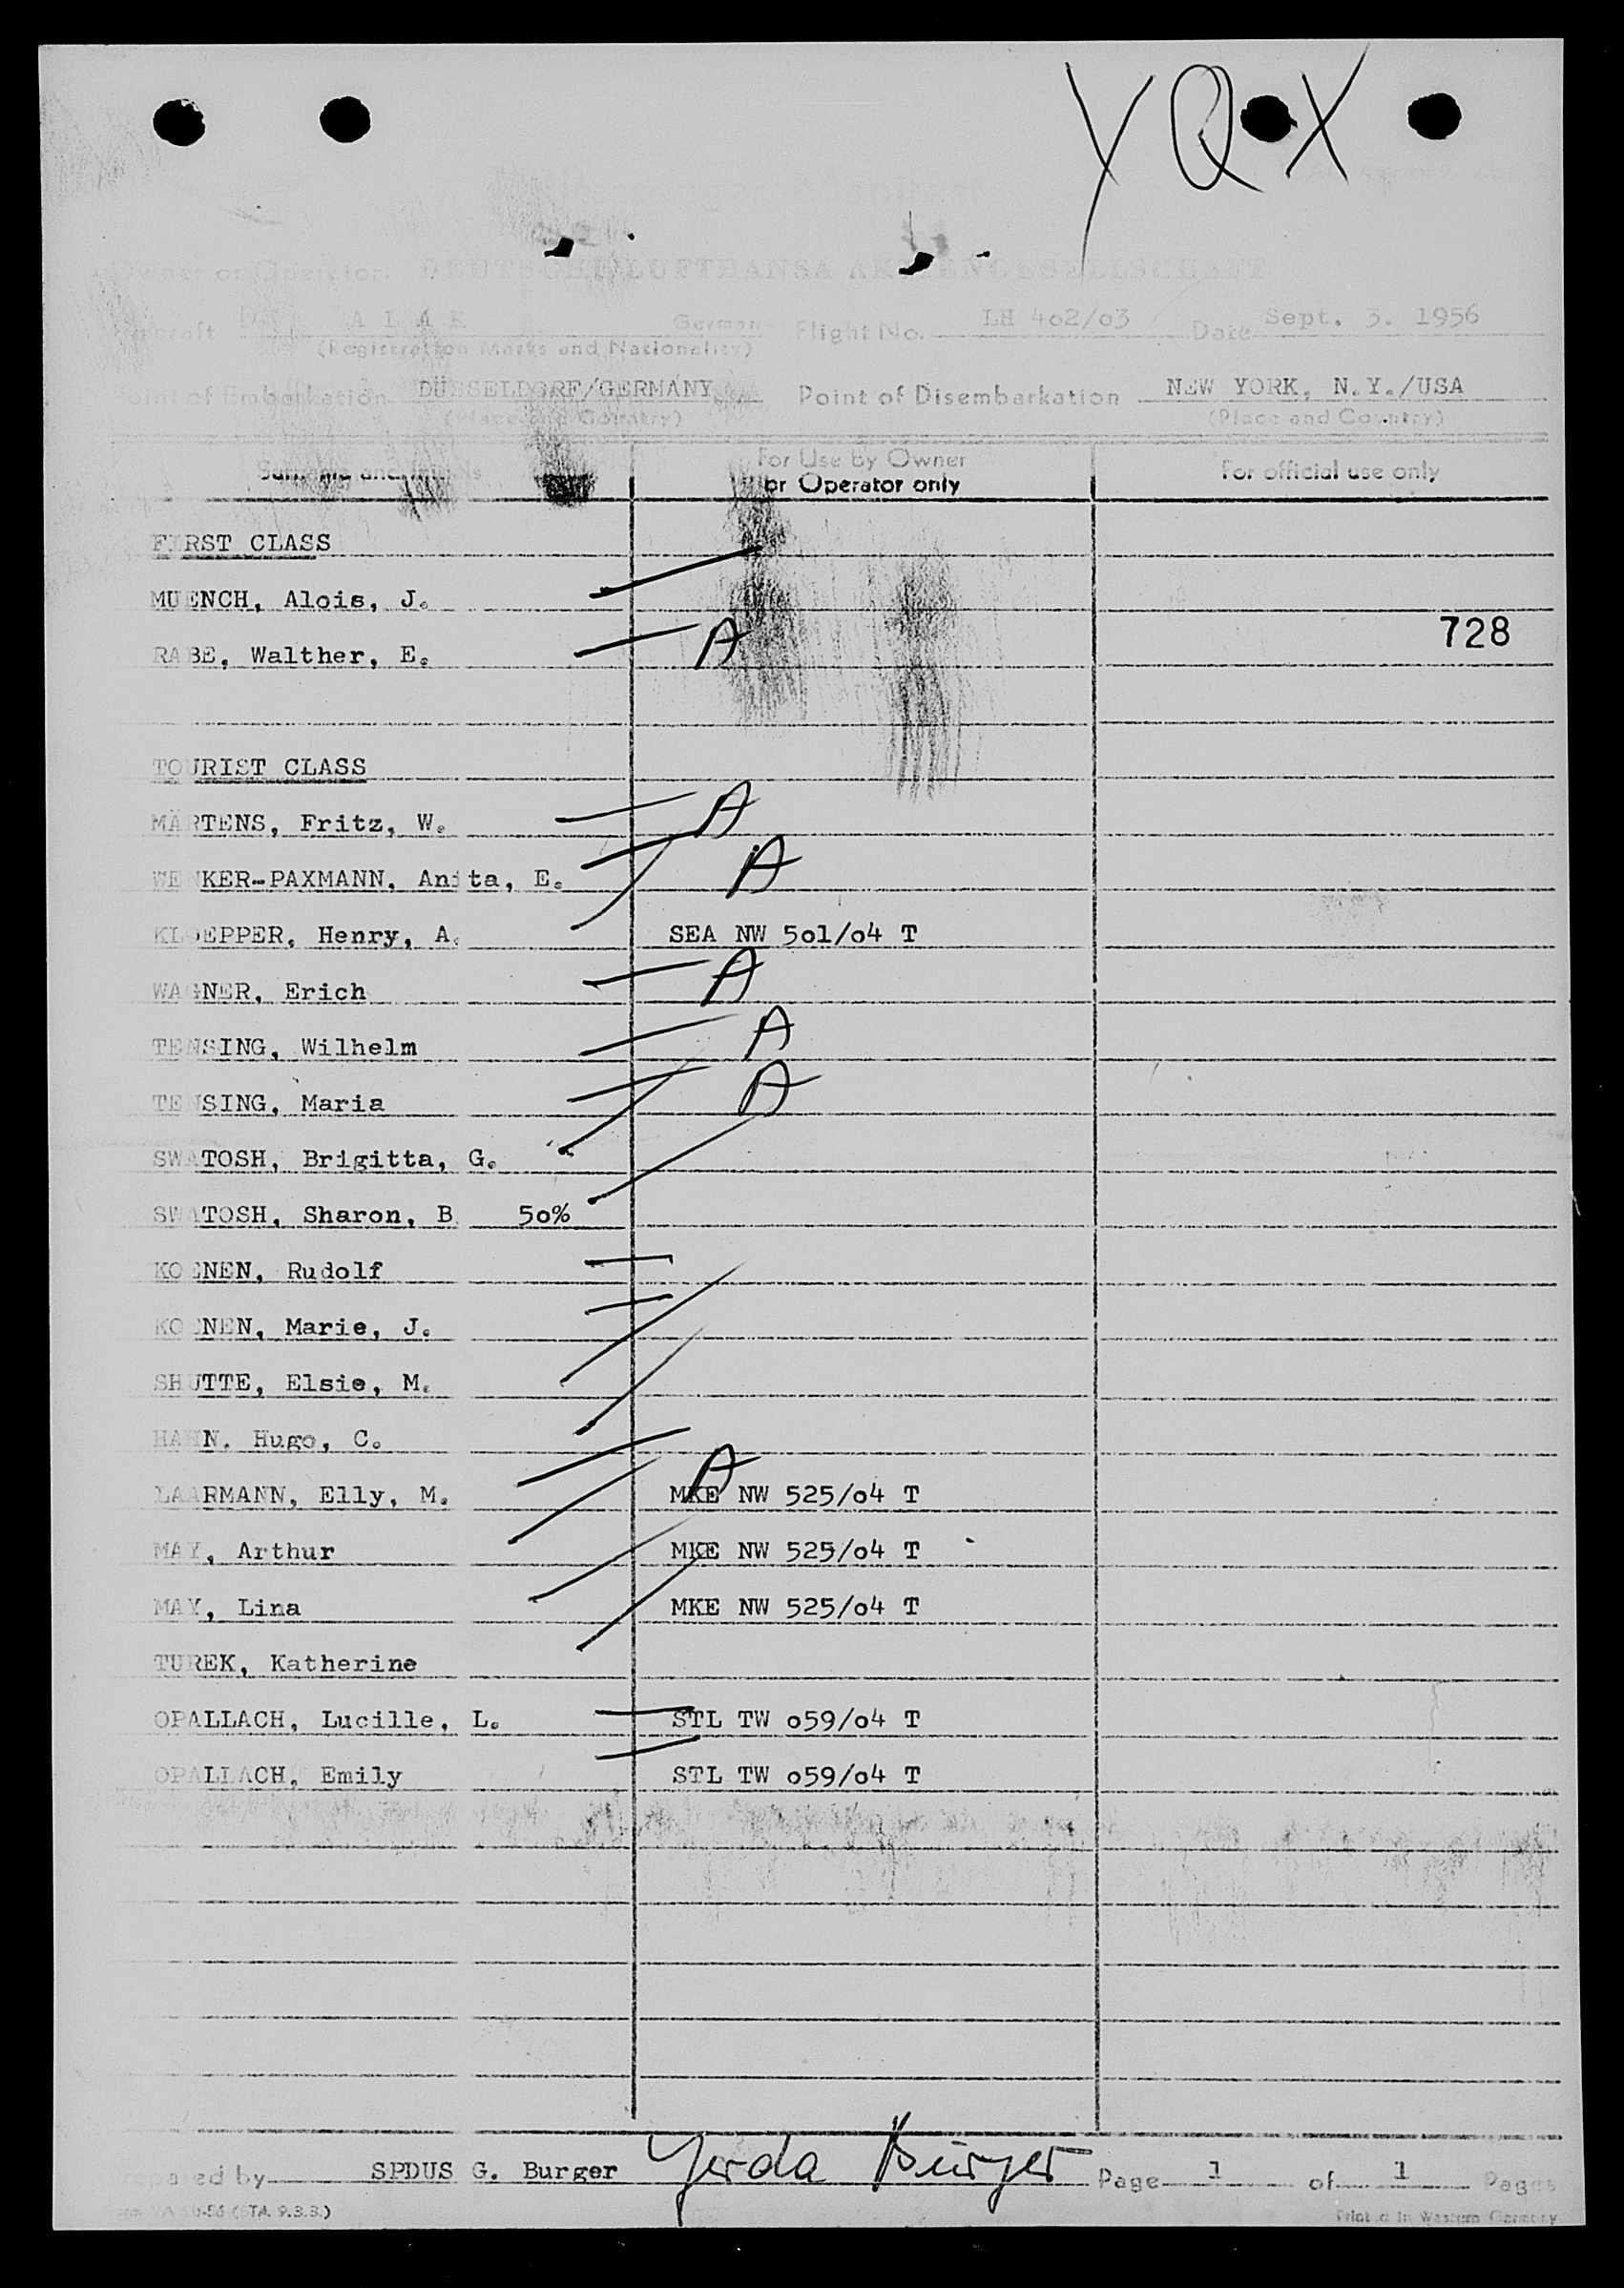 Y Q X
Owner or Operator: DEUTSCHE LUFTHANSA AKTIENGESELLSCHAFT
A L A K German Flight No. LH 4o2/o3 Date Sept. 3. 1956
(Registration Marks and Nationality)
Point of Embarkation DÜSSELDORF/GERMANY Point of Disembarkation NEW YORK, N.Y./USA
(Place and Country) (Place and Country)
Surname and Initials For Use by Owner or Operator only For official use only
FIRST CLASS
MUENCH, Alois, J.
728
RABE, Walther, E. A
TOURIST CLASS
MÄRTENS, Fritz, W. A
WENKER-PAXMANN, Anita, E. A
KLOEPPER, Henry, A. SEA NW 5o1/o4 T
WAGNER, Erich A
TENSING, Wilhelm A
TENSING, Maria A
SWATOSH, Brigitta, G.
SWATOSH, Sharon, B 5o%
KOENEN, Rudolf
KOENEN, Marie, J.
SHUTTE, Elsie, M.
HAHN, Hugo, C.
LAARMANN, Elly, M. A MKE NW 525/o4 T
MAY, Arthur MKE NW 525/o4 T
MAY, Lina MKE NW 525/o4 T
TUREK, Katherine
OPALLACH, Lucille, L. STL TW o59/o4 T
OPALLACH, Emily STL TW o59/o4 T
Prepared by SPDUS G. Burger Gerda Burger Page 1 of 1 Pages
(STA. 9.3.3.) Printed in Western Germany